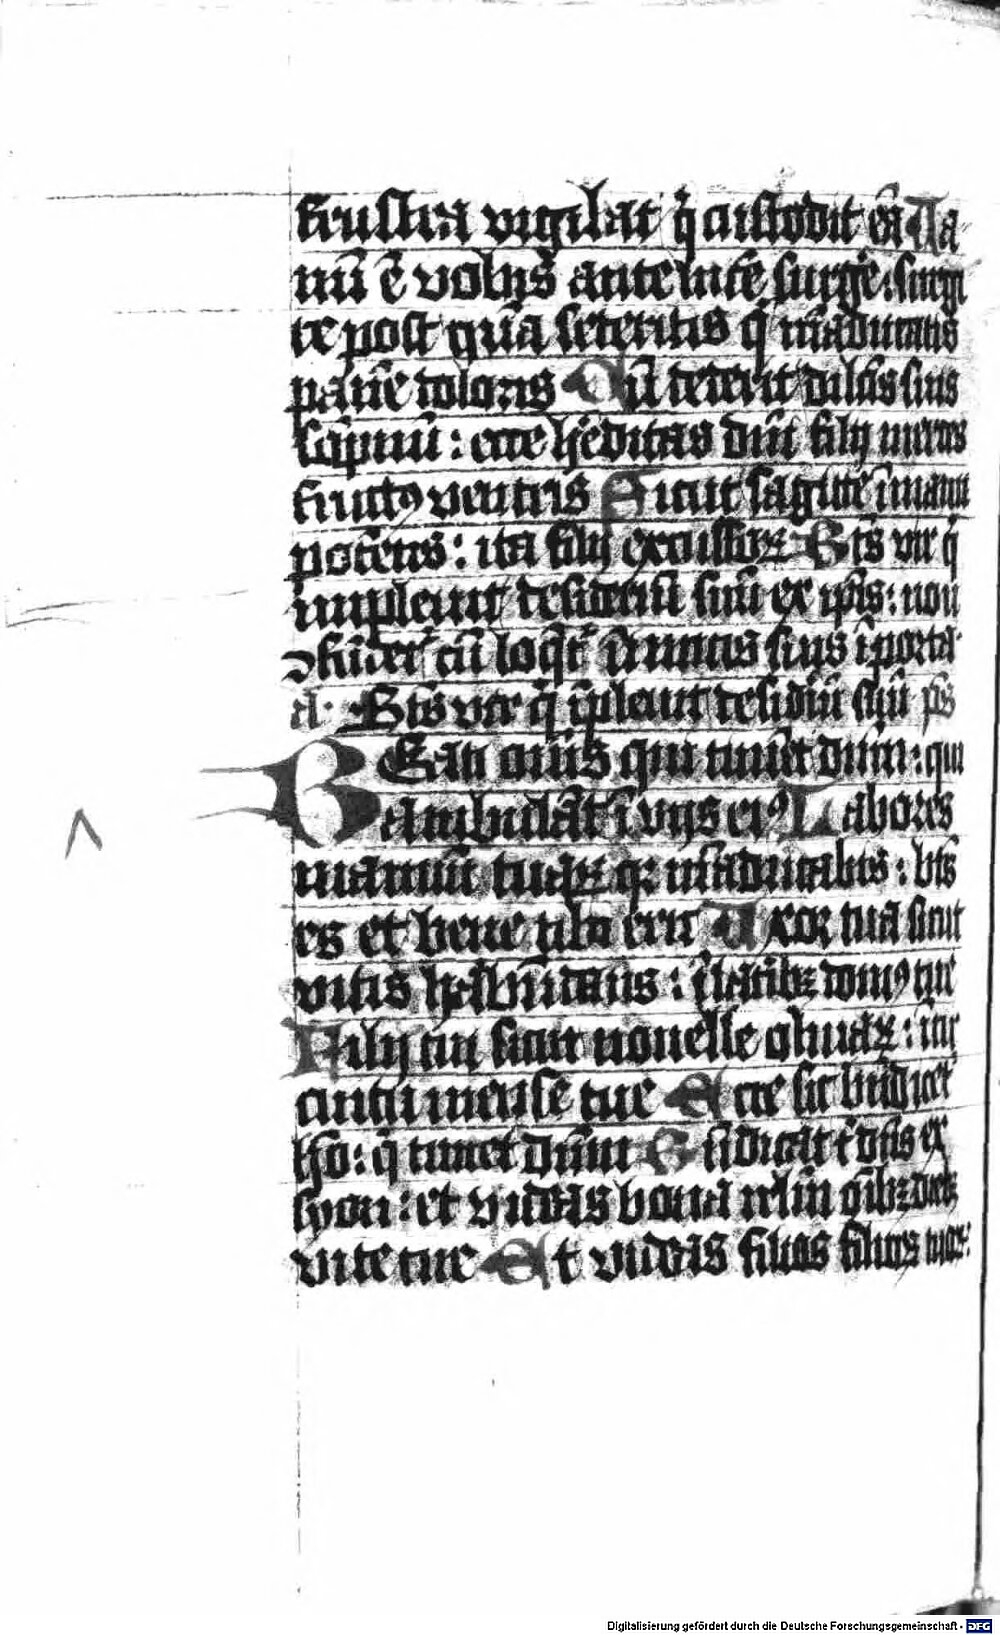 frustra vigilat q̇ custodit eā Va
nū ē vobis ante lucē surgē : surgi
te post quā sederitis q̇ māducatis
panē doloris Cū dederit dilcīs suis
sōpnū : ecce hēditas dn̄i filij merces
fructꝰ ventris Sicut sagitte ī manu
potētis : ita filij excussoꝝ Bt̄s vir q̇
impleuit desideriū suū ex ip̄is : non
ꝯfūdet᷑ cū loq̄t᷑ īimicis suis ī porta
a. Bt̄s vir q̇ īpleuit desid̓iū suū ps̄
BEati oīns qui timēt dn̄m : qui
ambulāt ī vijs eiꝰ Labores
manuū tuaꝝ qꝛ māducabis : bt̄s
es et bene tibi erit Vxor tua sicut
vitis habūdans : ī latibꝫ domꝰ tue
Filij tui sicut nouelle oliuaꝝ : in cir
cuitu mense tue Ecce sic bn̄dicet᷑
hō : q̇ timet dn̄m B n̄dicat t̄ dn̄s ex
syon : et videas bona irlm̄ oīb̄ꝫ diebꝫ
vite tue Et videas filios filioꝝ tuoꝝ :
Digitalisierung gefördert durch die Deutsche Forschungsgemeinschaft - DFG